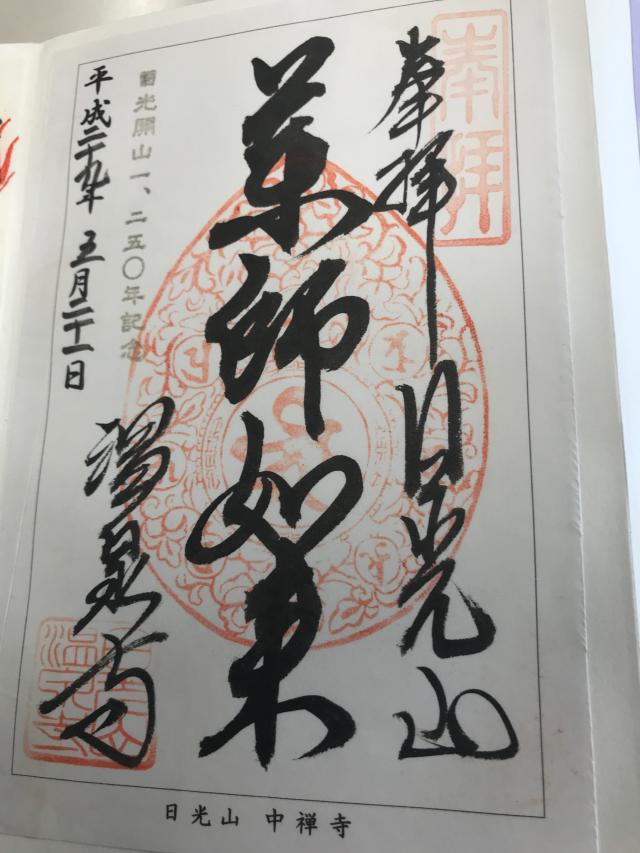 奉拝
奉拝 日光山
薬師如来
日光開山一、二五〇年記念
平成二十九年 五月二十一日
温泉寺
日光山 中禅寺